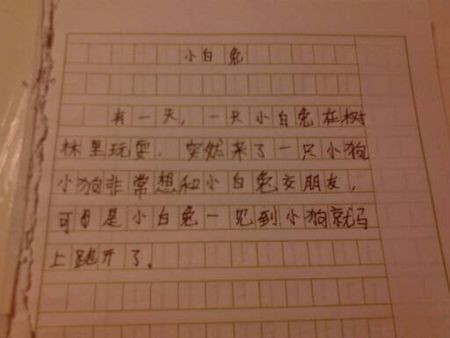 小白兔
有一天，一只小白兔在树
林里玩耍．突然来了一只小狗
小狗非常想和小白兔交朋友，
可是小白兔一见到小狗就马
上跑开了．